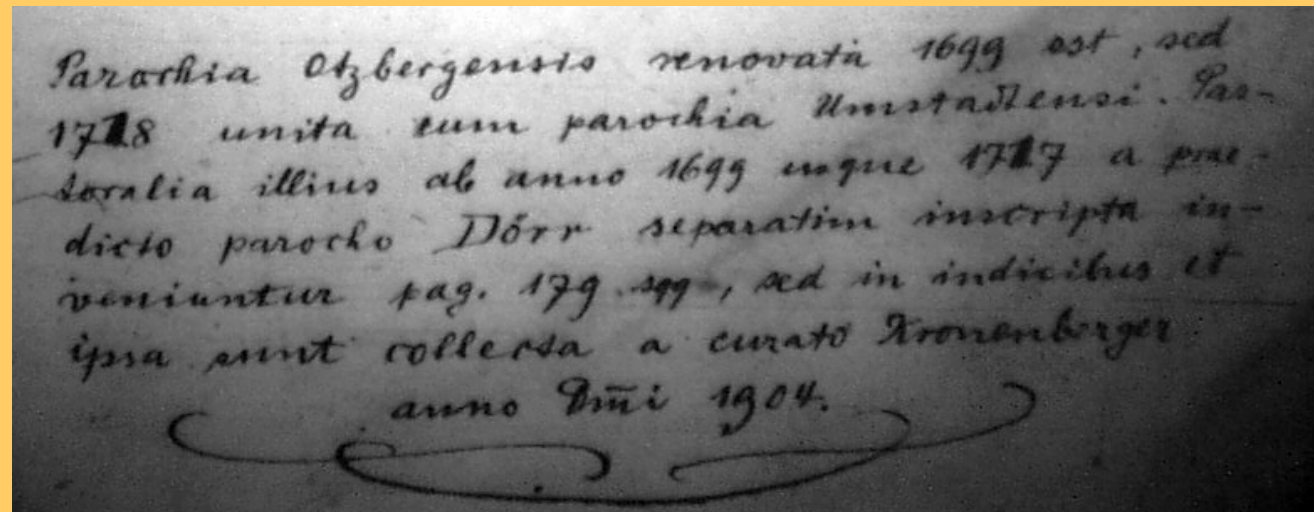 Parochia Otzbergensis renovata 1699 est, sed
1718 unita cum parochia Umstadiensi. Pas-
toralia illius ab anno 1699 usque 1717 a prae-
dicto parocho Dörr separatim inscripta in-
veniuntur pag. 179 sqq, sed in indicibus et
ipsa sunt collecta a curato Kronenberger
anno Dm̅i 1904.